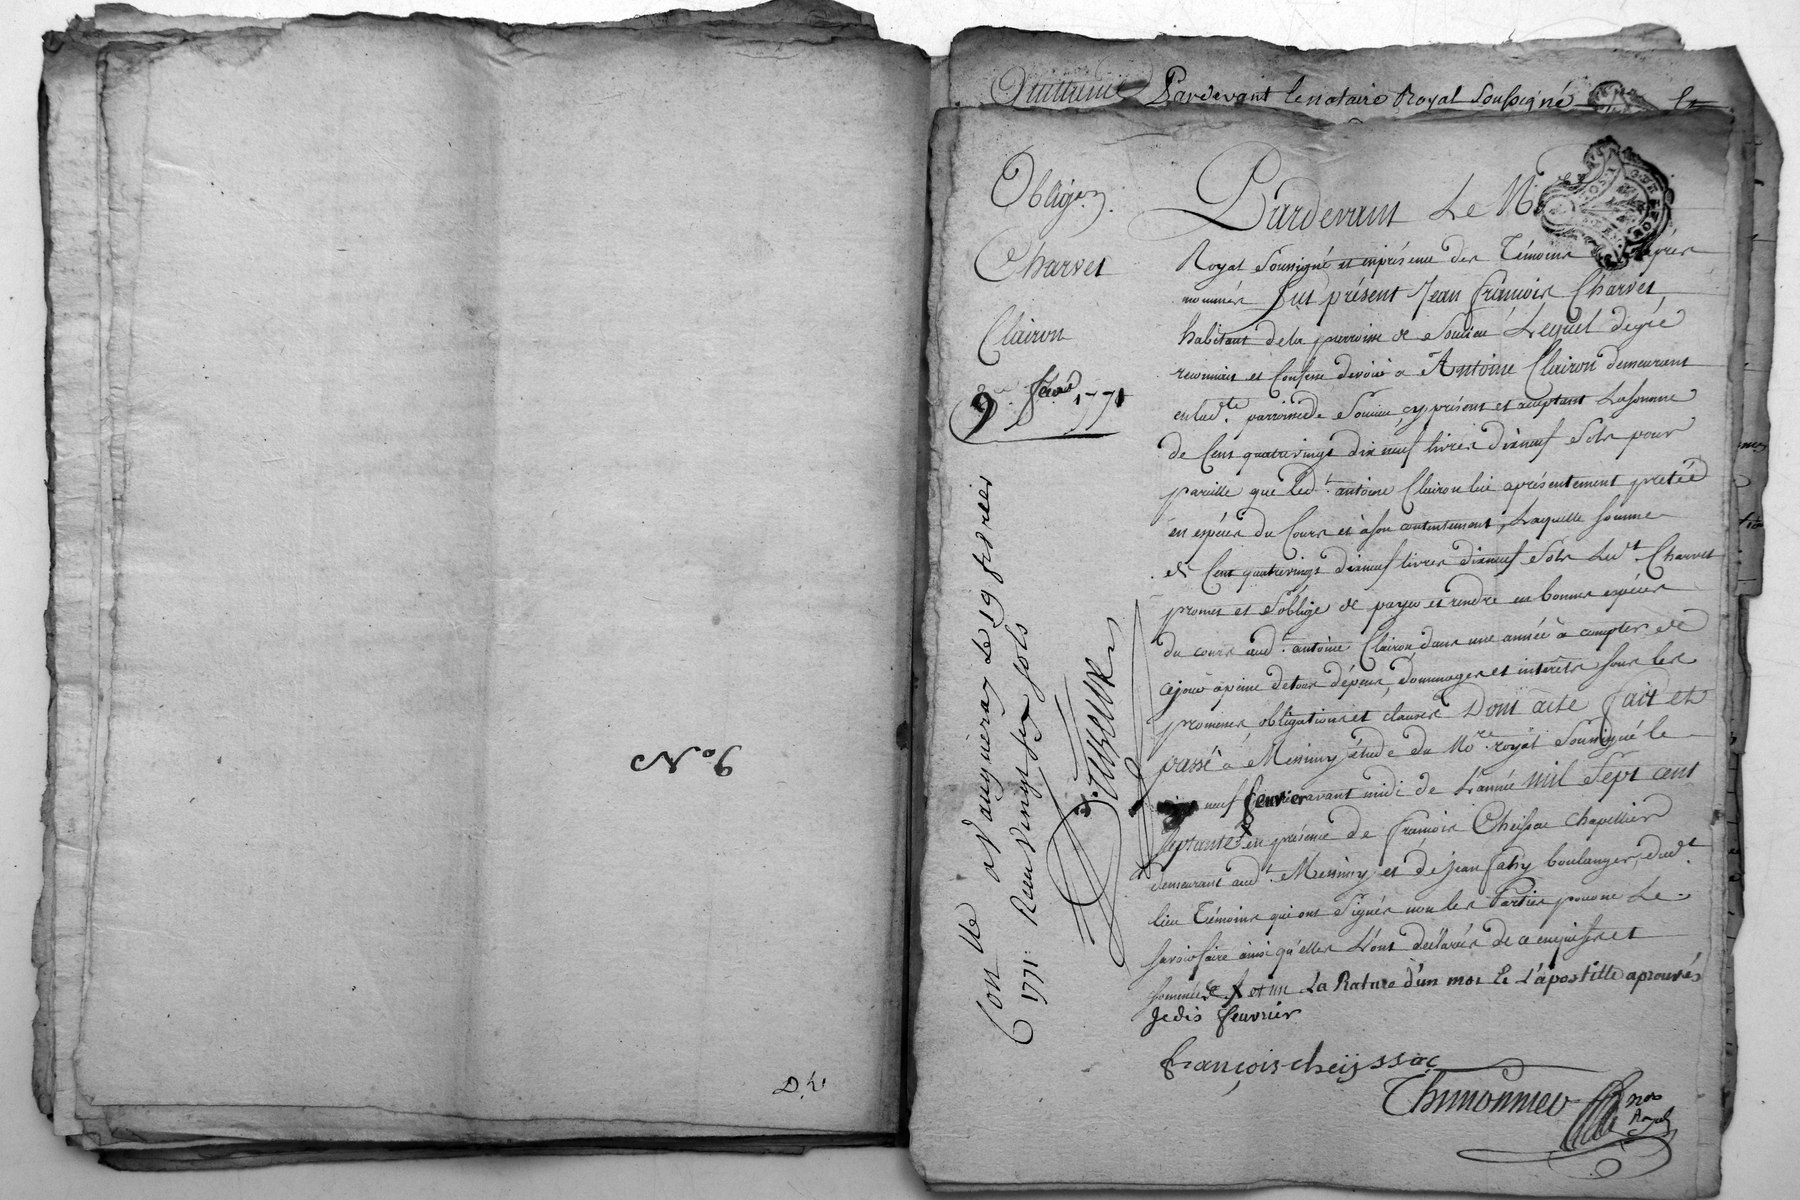 Quittance Pardevant le notaire Royal Soussigné
Pardevant Le N
Royal Soussigné et en présence des Témoins après
nommés fut présent Jean françois Charvet
habitant de la parroisse de Soucieu Lequel de gré
reconnait et Confesse devoir a Antoine Clairon demeurant
en lad.te parroisse de Soucieu, cy présent et aceptant La somme
de Cent quatrevingt dix neuf livres dixneuf Sols pour
pareille que led.t antoine Clairon lui a présentement pretée
en espéces du Cours et à son contentement, Laquelle somme
de Cent quatrevingt dixneuf livres dixneuf Sols Led.t Charvet
promet et S'oblige de payer et rendre en bonnes espéces
du cours aud.t antoine Clairon dans une année à compter de
ce jour a peine de tous dépens, dommages et interêts sous les
promesses obligations et clauses Dont acte fait et
passé a Messimy étude du No.re royal Soussigné le
neuf feuvrier avant midi de L'année mil Sept cent
septante en présence de françois Cheissac chapellier
demeurant aud.t Messimy et de jean fahy boulanger dud.t
lieu Témoins qui ont Signés non les Parties pour ne Le
savoir faire ainsi qu'elles L'ont déclarés de ce enquises et
sommées La Rature d'un mot & L'apostille aprouvés
Je dis feuvrier
françois cheijssac
Thimonnier
nore
Royal
Oblig.on
Charvet
Clairon
9 fevr 1771
Con.lle a Vaugneray Le 19 fevrier
1771. Reçu Vingt six sols
D.h.